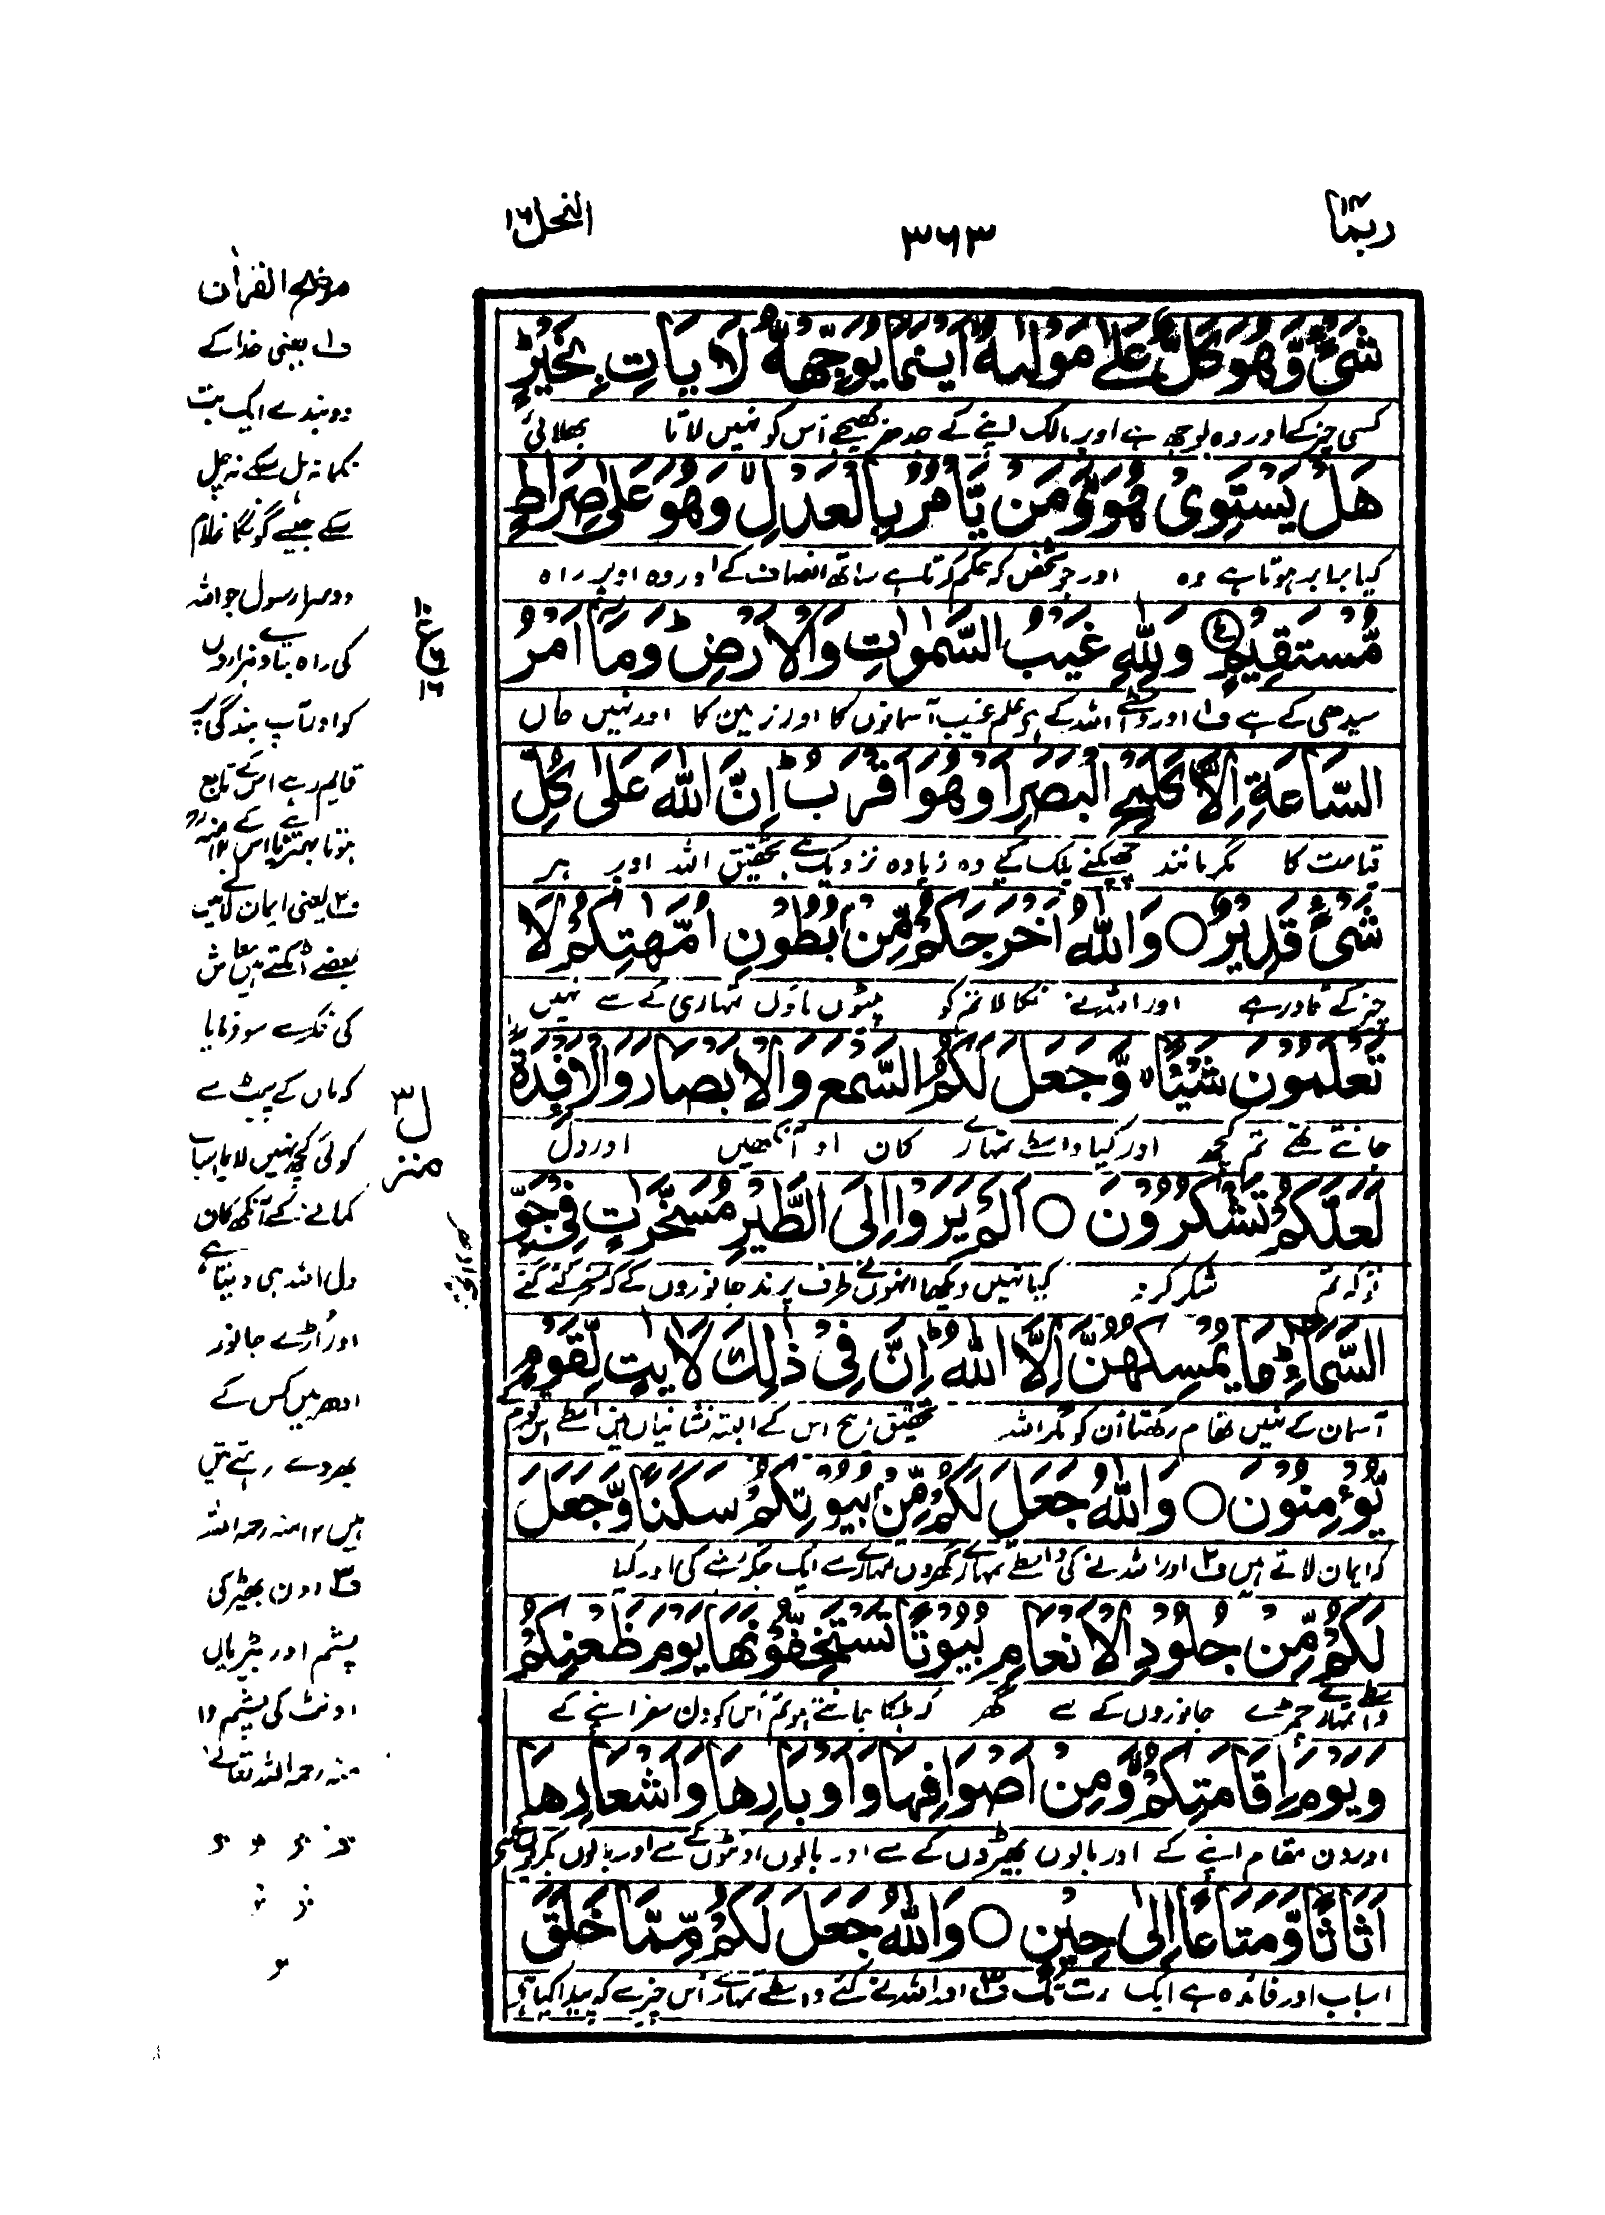 ربما ۱۴
۳۶۳
النحل ۱۶
شَیْءٍ وَّهُوَ كَلٌّ عَلٰی مَوْلٰىهُ اَیْنَمَا یُوَجِّهْهُّ لَا یَاْتِ بِخَیْرٍ ؕ
كسی چیز کے اور وہ بوجھ ہے اوپر مالک اپنے کے جدھر بھیجے اس کو نہیں لاتا بھلائی
هَلْ یَسْتَوِیْ هُوَ ۙ وَمَنْ یَّاْمُرُ بِالْعَدْلِ ۙ وَهُوَ عَلٰی صِرَاطٍ
کیا برابر ہوتا ہے وہ اور جو شخص کہ حکم کرتا ہے ساتھ انصاف کے اور وہ اوپر راہ
مُّسْتَقِیْمٍ وَلِلّٰهِ غَیْبُ السَّمٰوٰتِ وَالْاَرْضِ ؕ وَمَاۤ اَمْرُ
سیدھی کے ہے ف۱ اور واسطے اللہ کے ہے علم غیب آسمانوں کا اور زمین کا اور نہیں حال
السَّاعَةِ اِلَّا كَلَمْحِ الْبَصَرِ اَوْ هُوَ اَقْرَبُ ؕ اِنَّ اللّٰهَ عَلٰی كُلِّ
قیامت کا مگر مانند جھپکنے پلک کے یا وہ زیادہ نزدیک ہے تحقیق اللہ اوپر ہر
شَیْءٍ قَدِیْرٌ ○ وَاللّٰهُ اَخْرَجَكُمْ مِّنْۢ بُطُوْنِ اُمَّهٰتِكُمْ لَا
چیز کے قادر ہے اور اللہ نے نکالا تم کو پیٹوں ماؤں تمہاری کے سے نہیں
تَعْلَمُوْنَ شَیْـًٔا ۙ وَّجَعَلَ لَكُمُ السَّمْعَ وَالْاَبْصَارَ وَالْاَفْـِٕدَةَ ۙ
جانتے تھے تم کچھ اور کیا واسطے تمہارے کان اور آنکھیں اور دل
لَعَلَّكُمْ تَشْكُرُوْنَ ○ اَلَمْ یَرَوْا اِلَی الطَّیْرِ مُسَخَّرٰتٍ فِیْ جَوِّ
تو کہ تم شکر کرو کیا نہیں دیکھا انہوں نے طرف پرند جانوروں کے کہ مسخر کئے گئے
السَّمَآءِ ؕ مَا یُمْسِكُهُنَّ اِلَّا اللّٰهُ ؕ اِنَّ فِیْ ذٰلِكَ لَاٰیٰتٍ لِّقَوْمٍ
آسمان کے نہیں تھام رکھتا ان کو مگر اللہ تحقیق بیچ اس کے البتہ نشانیاں ہیں واسطے اس قوم
یُّؤْمِنُوْنَ ○ وَاللّٰهُ جَعَلَ لَكُمْ مِّنْۢ بُیُوْتِكُمْ سَكَنًا وَّجَعَلَ
کہ ایمان لاتے ہیں ف۲ اور اللہ نے کی واسطے تمہارے گھروں تمہارے سے ایک جگہ رہنے کی اور کیا
لَكُمْ مِّنْ جُلُوْدِ الْاَنْعَامِ بُیُوْتًا تَسْتَخِفُّوْنَهَا یَوْمَ ظَعْنِكُمْ
واسطے تمہارے چمڑے جانوروں کے سے گھر کہ ہلکا جانتے ہو تم اس کو دن سفر اپنے کے
وَیَوْمَ اِقَامَتِكُمْ ۙ وَمِنْ اَصْوَافِهَا وَاَوْبَارِهَا وَاَشْعَارِهَاۤ
اور دن مقام اپنے کے اور بالوں بھیڑوں کے سے اور بالوں اونٹوں کے سے اور بالوں
اَثَاثًا وَّمَتَاعًا اِلٰی حِیْنٍ ○ وَاللّٰهُ جَعَلَ لَكُمْ مِّمَّا خَلَقَ
اسباب اور فائدہ ہے ایک مدت تک ف۳ اور اللہ نے کئے واسطے تمہارے اس چیز سے کہ پیدا کیا
منزل ۳
موضح القرآن
ف۱ یعنی خدا کے
دو بندے ایک بت
نکما نہ ہل سکے نہ چل
سکے جیسے گونگا غلام
دوسرا رسول جو اللہ
کی راہ بتاوے ہزاروں
کو اور آپ بندگی پر
قایم رہے اس کے تابع
ہونا بہتر یا اس کے
ف۲ یعنی ایمان لانے میں
بعضے اٹکتے ہیں معاش
کی فکر سے سو فرمایا
کہ ماں کے پیٹ سے
کوئی کچھ نہیں لایا اسباب
کمانے کے آنکھ کان
دل اللہ ہی دیتا ہے
اور اڑتے جانور
ادھر میں کس کے
بھروسے رہتے
ہیں ۱۲ منہ رحمہ اللہ
ف۳ اون بھیڑ کی
پشم اور بیر بالی
اونٹ کی پشم ۱۲
منہ رحمہ اللہ تعالے